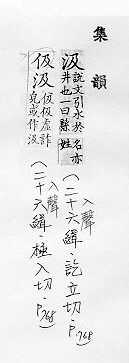 集韻
汲 說文引水於井也一曰縣名亦姓
(入聲二十六緝・訖立切・P.768)
伋汲 伋伋虛詐皃或作汲
(入聲二十六緝・極入切・P.768)